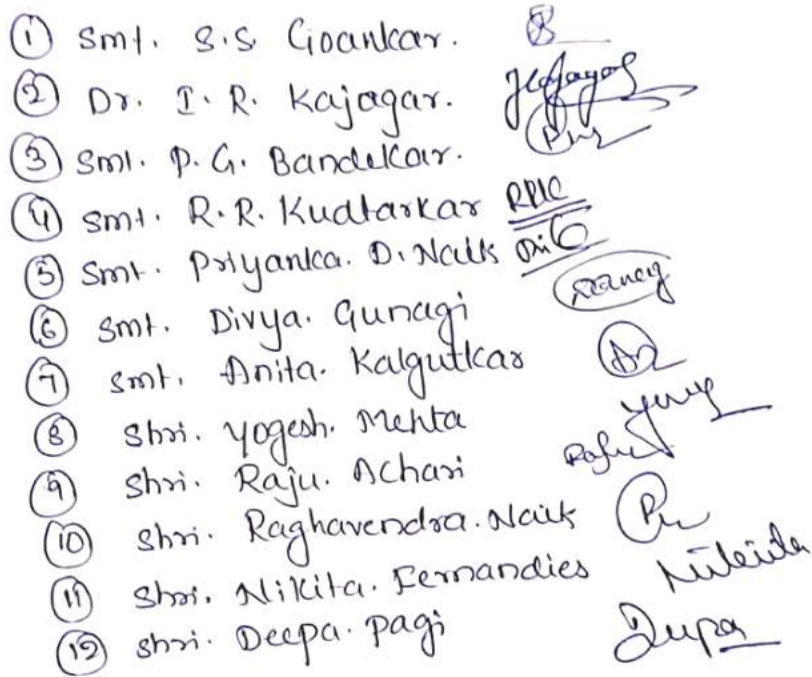 1 Smt. S.S. Goankar.
2 Dr. I. R. Kajagar.
3 Smt. P. G. Bandekar.
4 Smt. R. R. Kudtarkar RRK
5 Smt. Priyanka. D. Naik
6 Smt. Divya. Gunagi
7 Smt. Anita. Kalgutkar
8 Shri. Yogesh. Mehta
9 Shri. Raju. Achari Raju
10 Shri. Raghavendra. Naik
11 Shri. Nikita. Fernandies
12 Shri. Deepa. Pagi Deepa